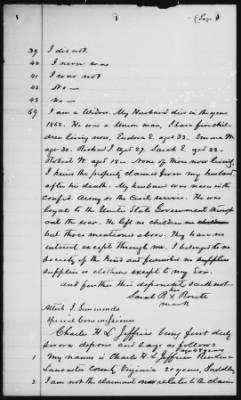 39 I did not.
40 I never was
41 I was not
42 No —
43 No —
69 I am a Widow. My Husband died in the year
186 . He was a Union man, I have five chil-
dren living now, Eudora E. age 33. Emma M.
age 30. Richard I. aged 27. Sarah E. aged 22.
Robert W. aged 18 — None of them now living
I the property claimed from my husband
after his death. My husband was never in the
confed. Army or the Civil service. He was
loyal to the United State Government through
out the war. He left no children
but those mentioned above. They have no
interest except through me. I belonged to no
society of the kind and furnished no
supplies or clothes except to my Son.
And further this deponent saith not
her
Sarah R X Route
mark
Attest I. Simmonds
Special Commissioner
Charles H. L. Jeffries being first duly
sworn deposes and says as follows:
1 My name is Charles H. L. Jeffries Residence
Lancaster County Virginia
2 I am not the claimant nor related to the claim